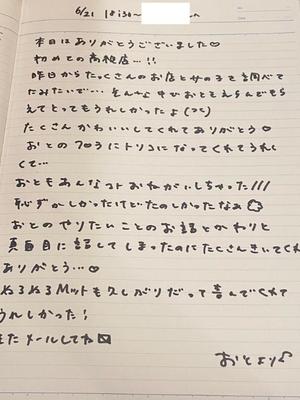 6/21 18:30~
本日はありがとうございました♡
初めての高校店…!!
昨日からたっくさんのお店と女の子を調べて
てみたいで… そんな中でおとをえらんでもら
えてとってもうれしかったよ
たくさんかわいいしてくれてありがとう♡
おとのフロうにトリコになってくれてうれし
くて…
おともあんなコトおねがいしちゃった///
恥ずかしかったけどたのしかったなぁ
おとのやりたいことのお話とかわりと
真面目に話してしまったのにたくさんきいてくれ
ありがとう…♡
ぬるぬるMットも久しぶりだって喜んでくれて
うれしかった!
またメールしてね✉
おとより♪